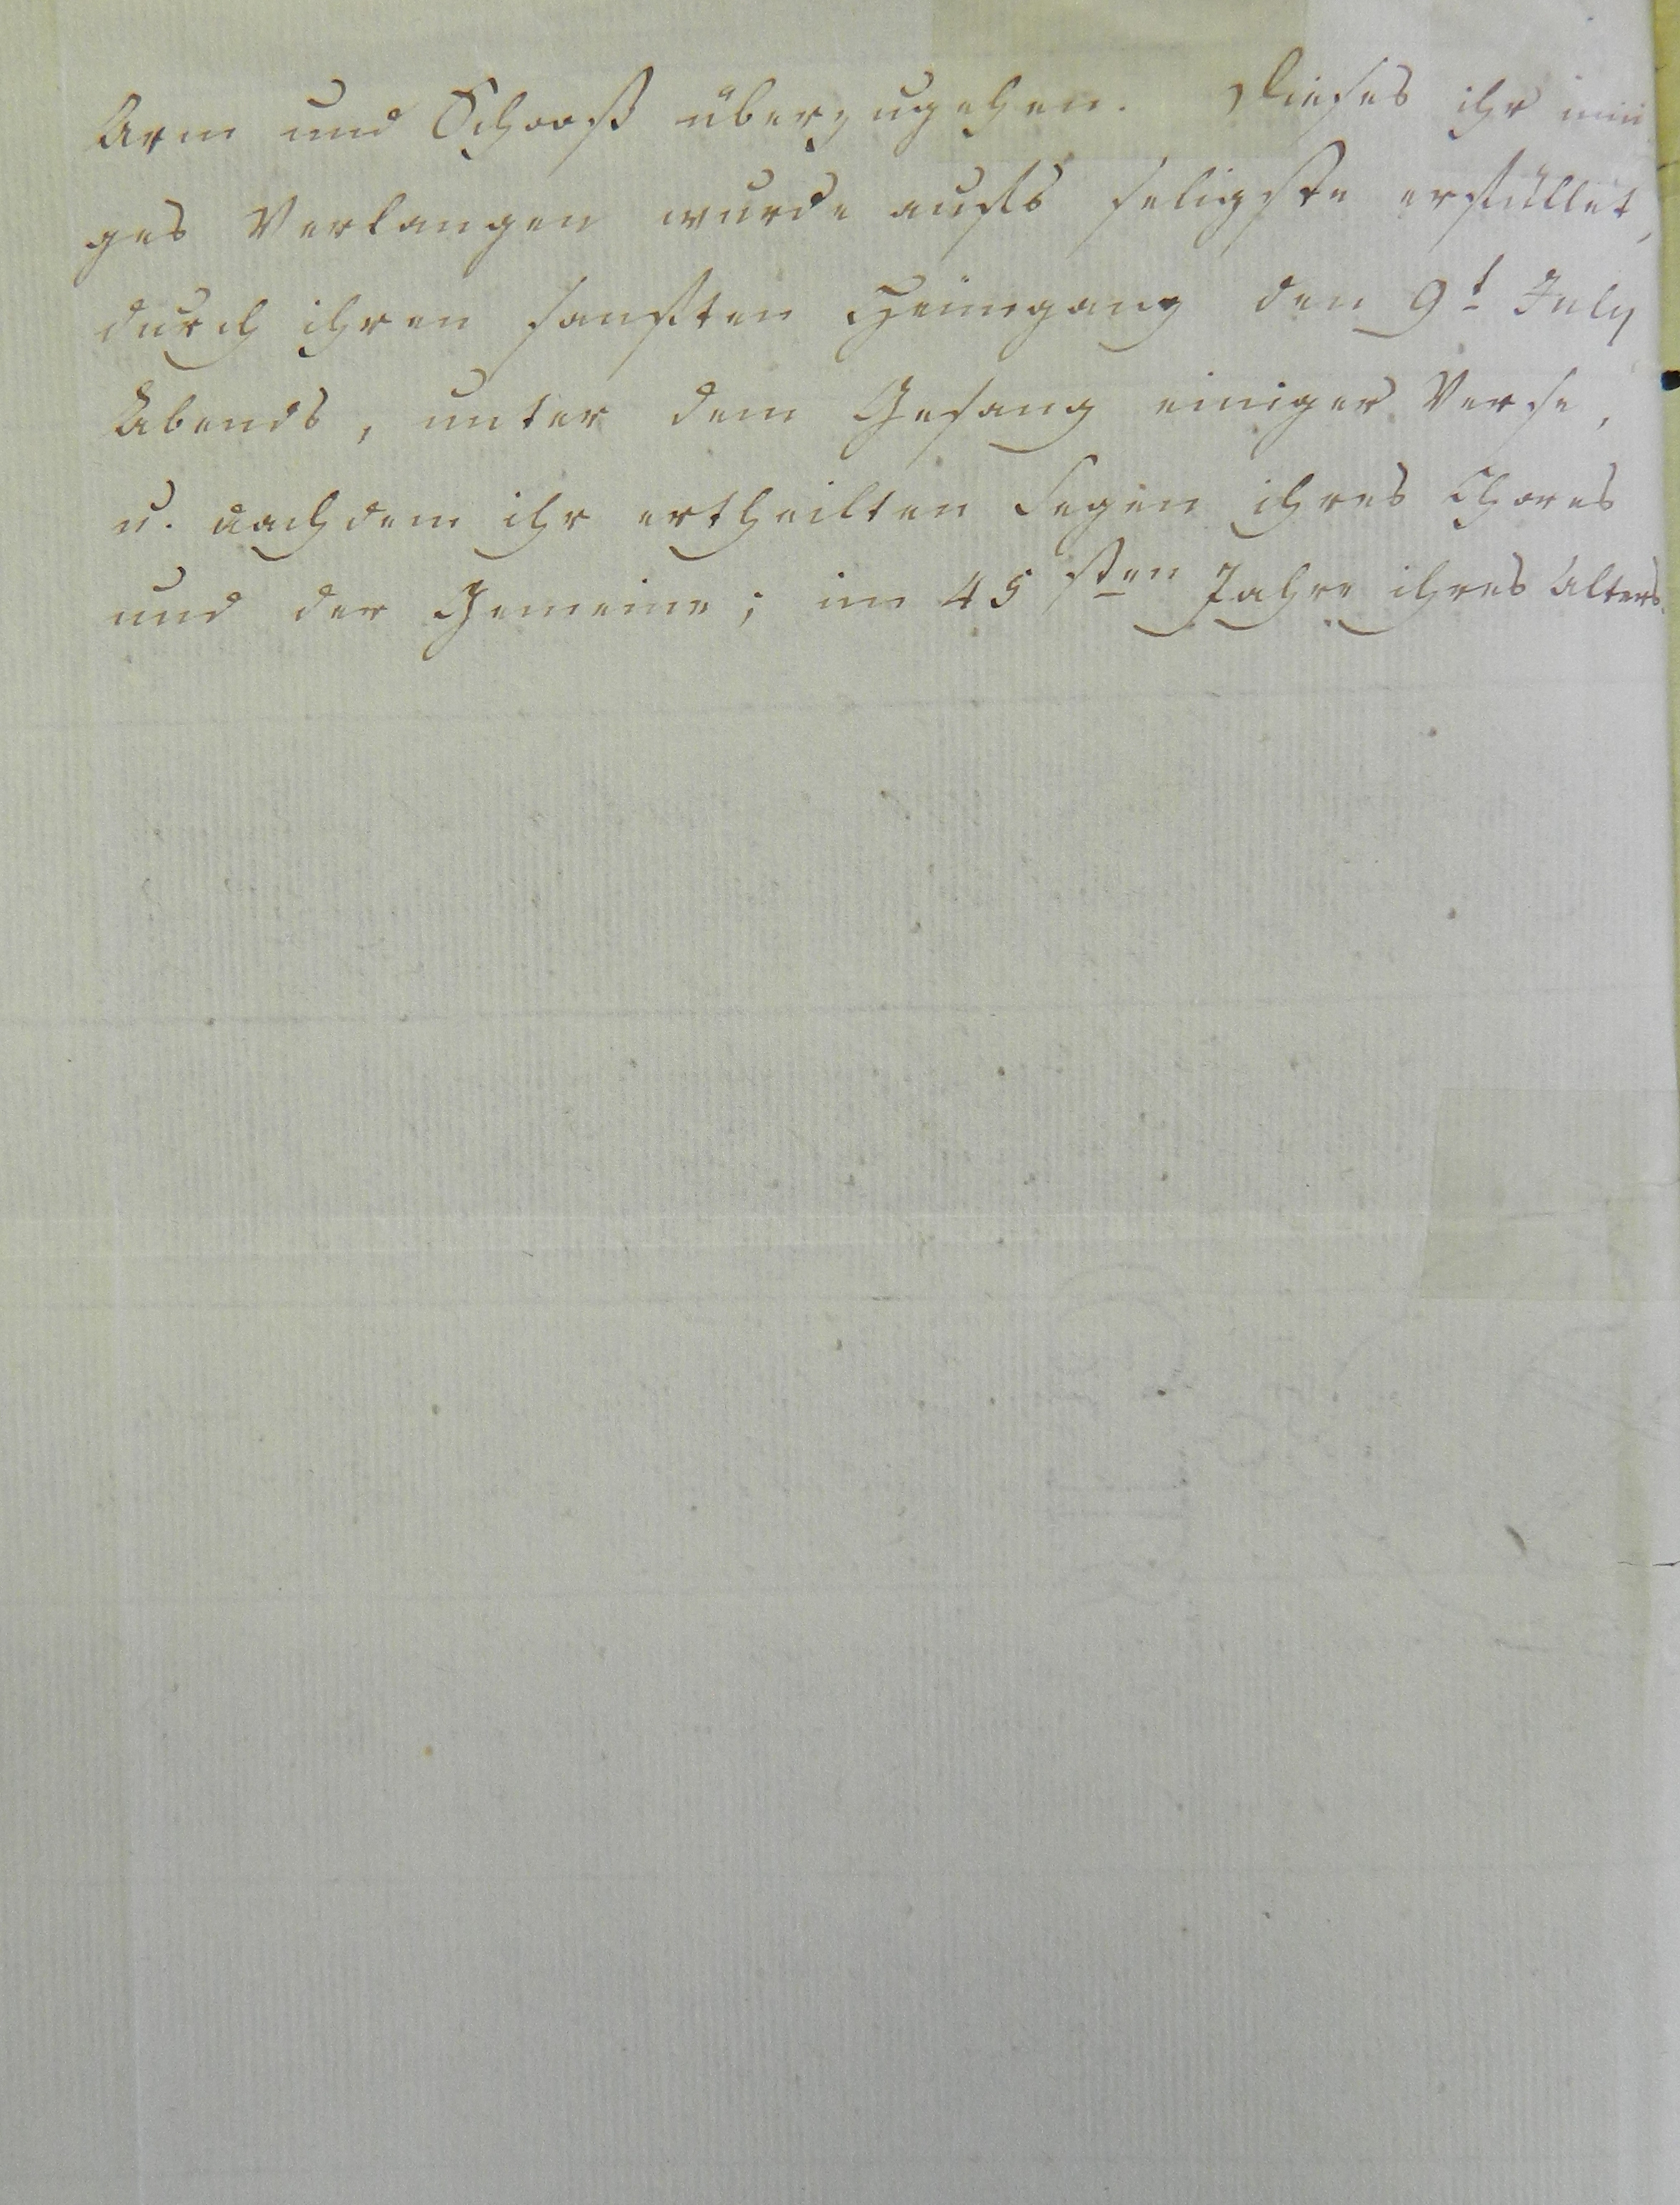 Arm und Schooß überzugehen. Dieses ihr inni
ges Verlangen wurde aufs seligste erfüllet,
durch ihren sanften Heimgang den 9t July
Abends, unter dem Gesang einiger Verse,
u. nach dem ihr ertheilten Segen ihres Chores
und der Gemeine; im 45sten Jahre ihres Alters.